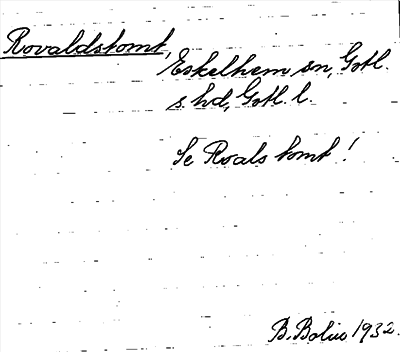 Rovaldstomt,
Eskelhem sn, Gotl.
s hd, Gotl. l.
Se Roals tomt!
B. Bolin 1932.